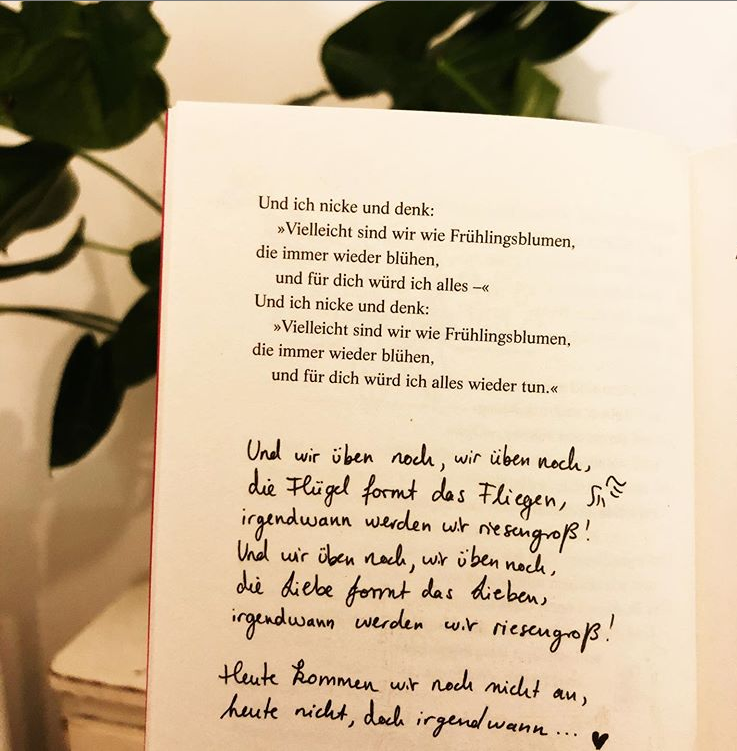 Und ich nicke und denk:
»Vielleicht sind wir wie Frühlingsblumen,
die immer wieder blühen,
und für dich würd ich alles –«
Und ich nicke und denk:
»Vielleicht sind wir wie Frühlingsblumen,
die immer wieder blühen,
und für dich würd ich alles wieder tun.«
Und wir üben noch, wir üben noch,
die Flügel formt das Fliegen,
irgendwann werden wir riesengroß!
Und wir üben noch, wir üben noch,
die Liebe formt das Lieben,
irgendwann werden wir riesengroß!
Heute kommen wir noch nicht an,
heute nicht, doch irgendwann...